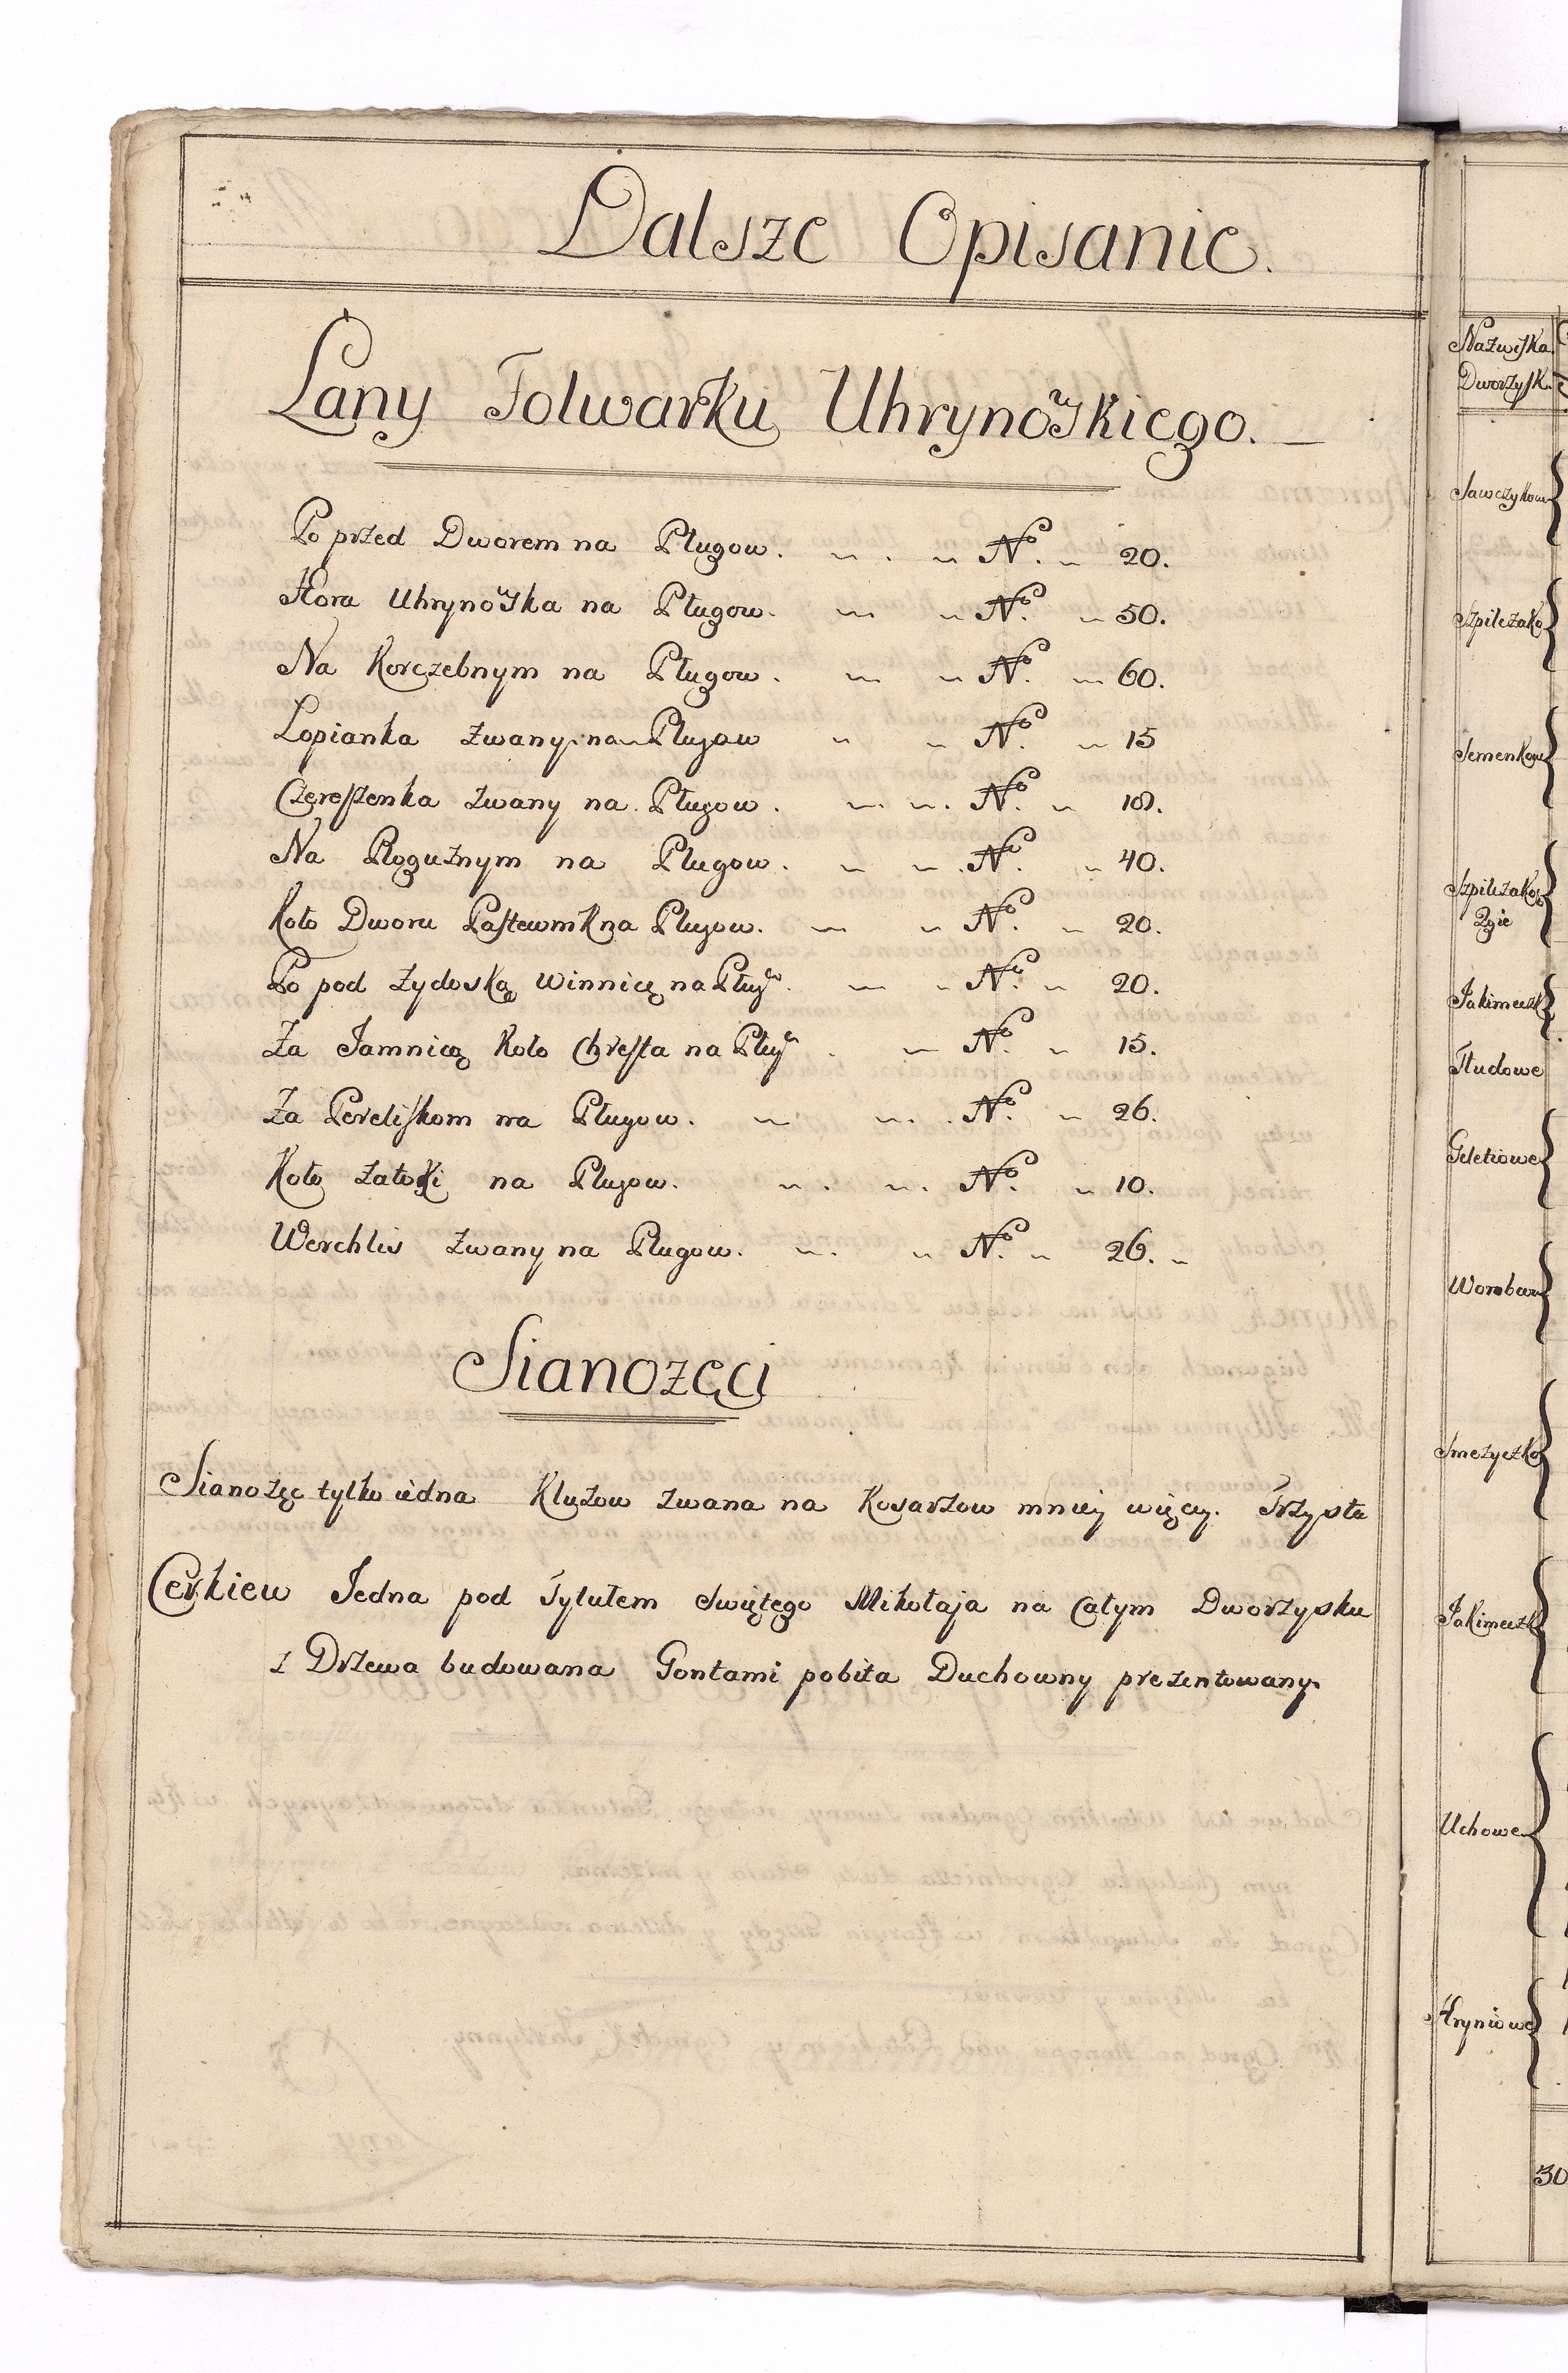 Dalsze Opisanie.
Łany Folwarku Uhrynowskiego.
Po przed Dworem na Pługow. No. 20.
Hora Uhrynowska na Pługow. No. 50.
Na Korczebnym na Pługow. No. 60.
Łopianka zwany na Pługow No. 15
Czereszenka zwany na Pługow. No. 18.
Na Roguznym na Pługow. No. 40.
Koło Dworu Pastewnik na Pługow. No. 20.
Po pod zydoską winnicę na Pługw. No. 20.
Za Jamnicą koło Chresta na Pług. No. 15.
Za Pereliskom na Pługow. No. 26.
Koło zatoki na Pługow. No. 10.
Werchlis zwany na Pługow. No. 26.
Sianozęci
Sianozęc tylko iedna Kluzow zwana na Kosarzow mniej więcy. Trzysta
Cerkiew Jedna pod Tytułem Swiętego Mikołaja na całym Dworzysku
z Drzewa budowana Gontami pobita Duchowny prezentowany.
Nazwiska
Dworzysk.
Sawczykow
Szpilczako
Semenkow
Szpilczako
2gie
Jakimeczk
Hudowe
Geletiowe
Worobow
Smezyczko
Jakimeczk
Uchowe
Hryniowe
30